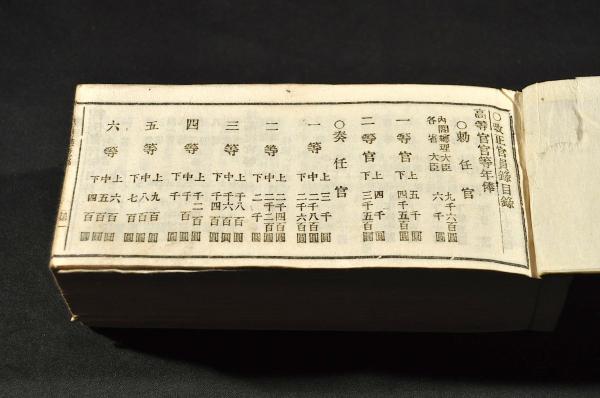 〇改正官員録目録
高等官官等年俸
〇勅任官
內閣總理大臣 九千六百圓
各省大臣 六千圓
一等官 上 五千圓
下 四千五百圓
二等官 上 四千圓
下 三千五百圓
〇奏任官
一等 上 三千圓
中 二千八百圓
下 二千六百圓
二等 上 二千四百圓
中 二千二百圓
下 二千圓
三等 上 千八百圓
中 千六百圓
下 千四百圓
四等 上 千二百圓
中 千圓
下
五等 上 九百圓
中 八百圓
下 七百圓
六等 上 六百圓
中 五百圓
下 四百圓